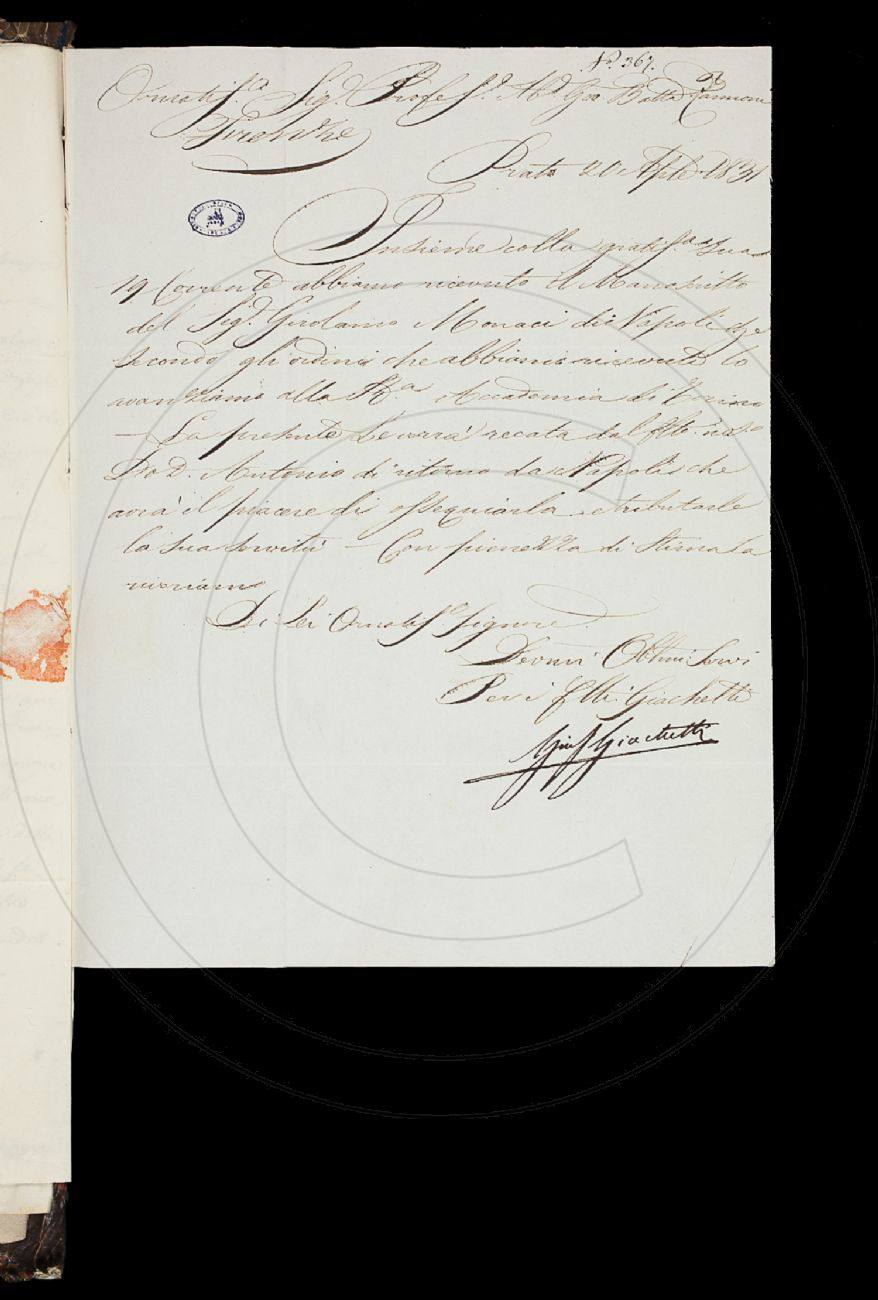 N.º 367.
Ornatiss.º Sig.r Profess.r Ab.e Gio Batta Zannoni
Firenze
Prato 20 Aple 1831
Insieme colla gratiss.a Sua
19 Corrente abbiamo ricevuto il Manoscritto
del Sig.r Girolamo Monaci di Napoli che
secondo gli ordini che abbiamo ricevuti lo
avanziamo alla R.a Accademia di Torino
— La presente Le verrà recata dal
D. Antonio di ritorno da Napoli che
avrà il piacere di ossequiarla e tributarle
la sua servitù — Con pienezza di stima La
riveriamo
Di Lei Ornatiss.º Signore
Devmi Obbmi Servi
Per i flli Giachetti
Gius Giachetti